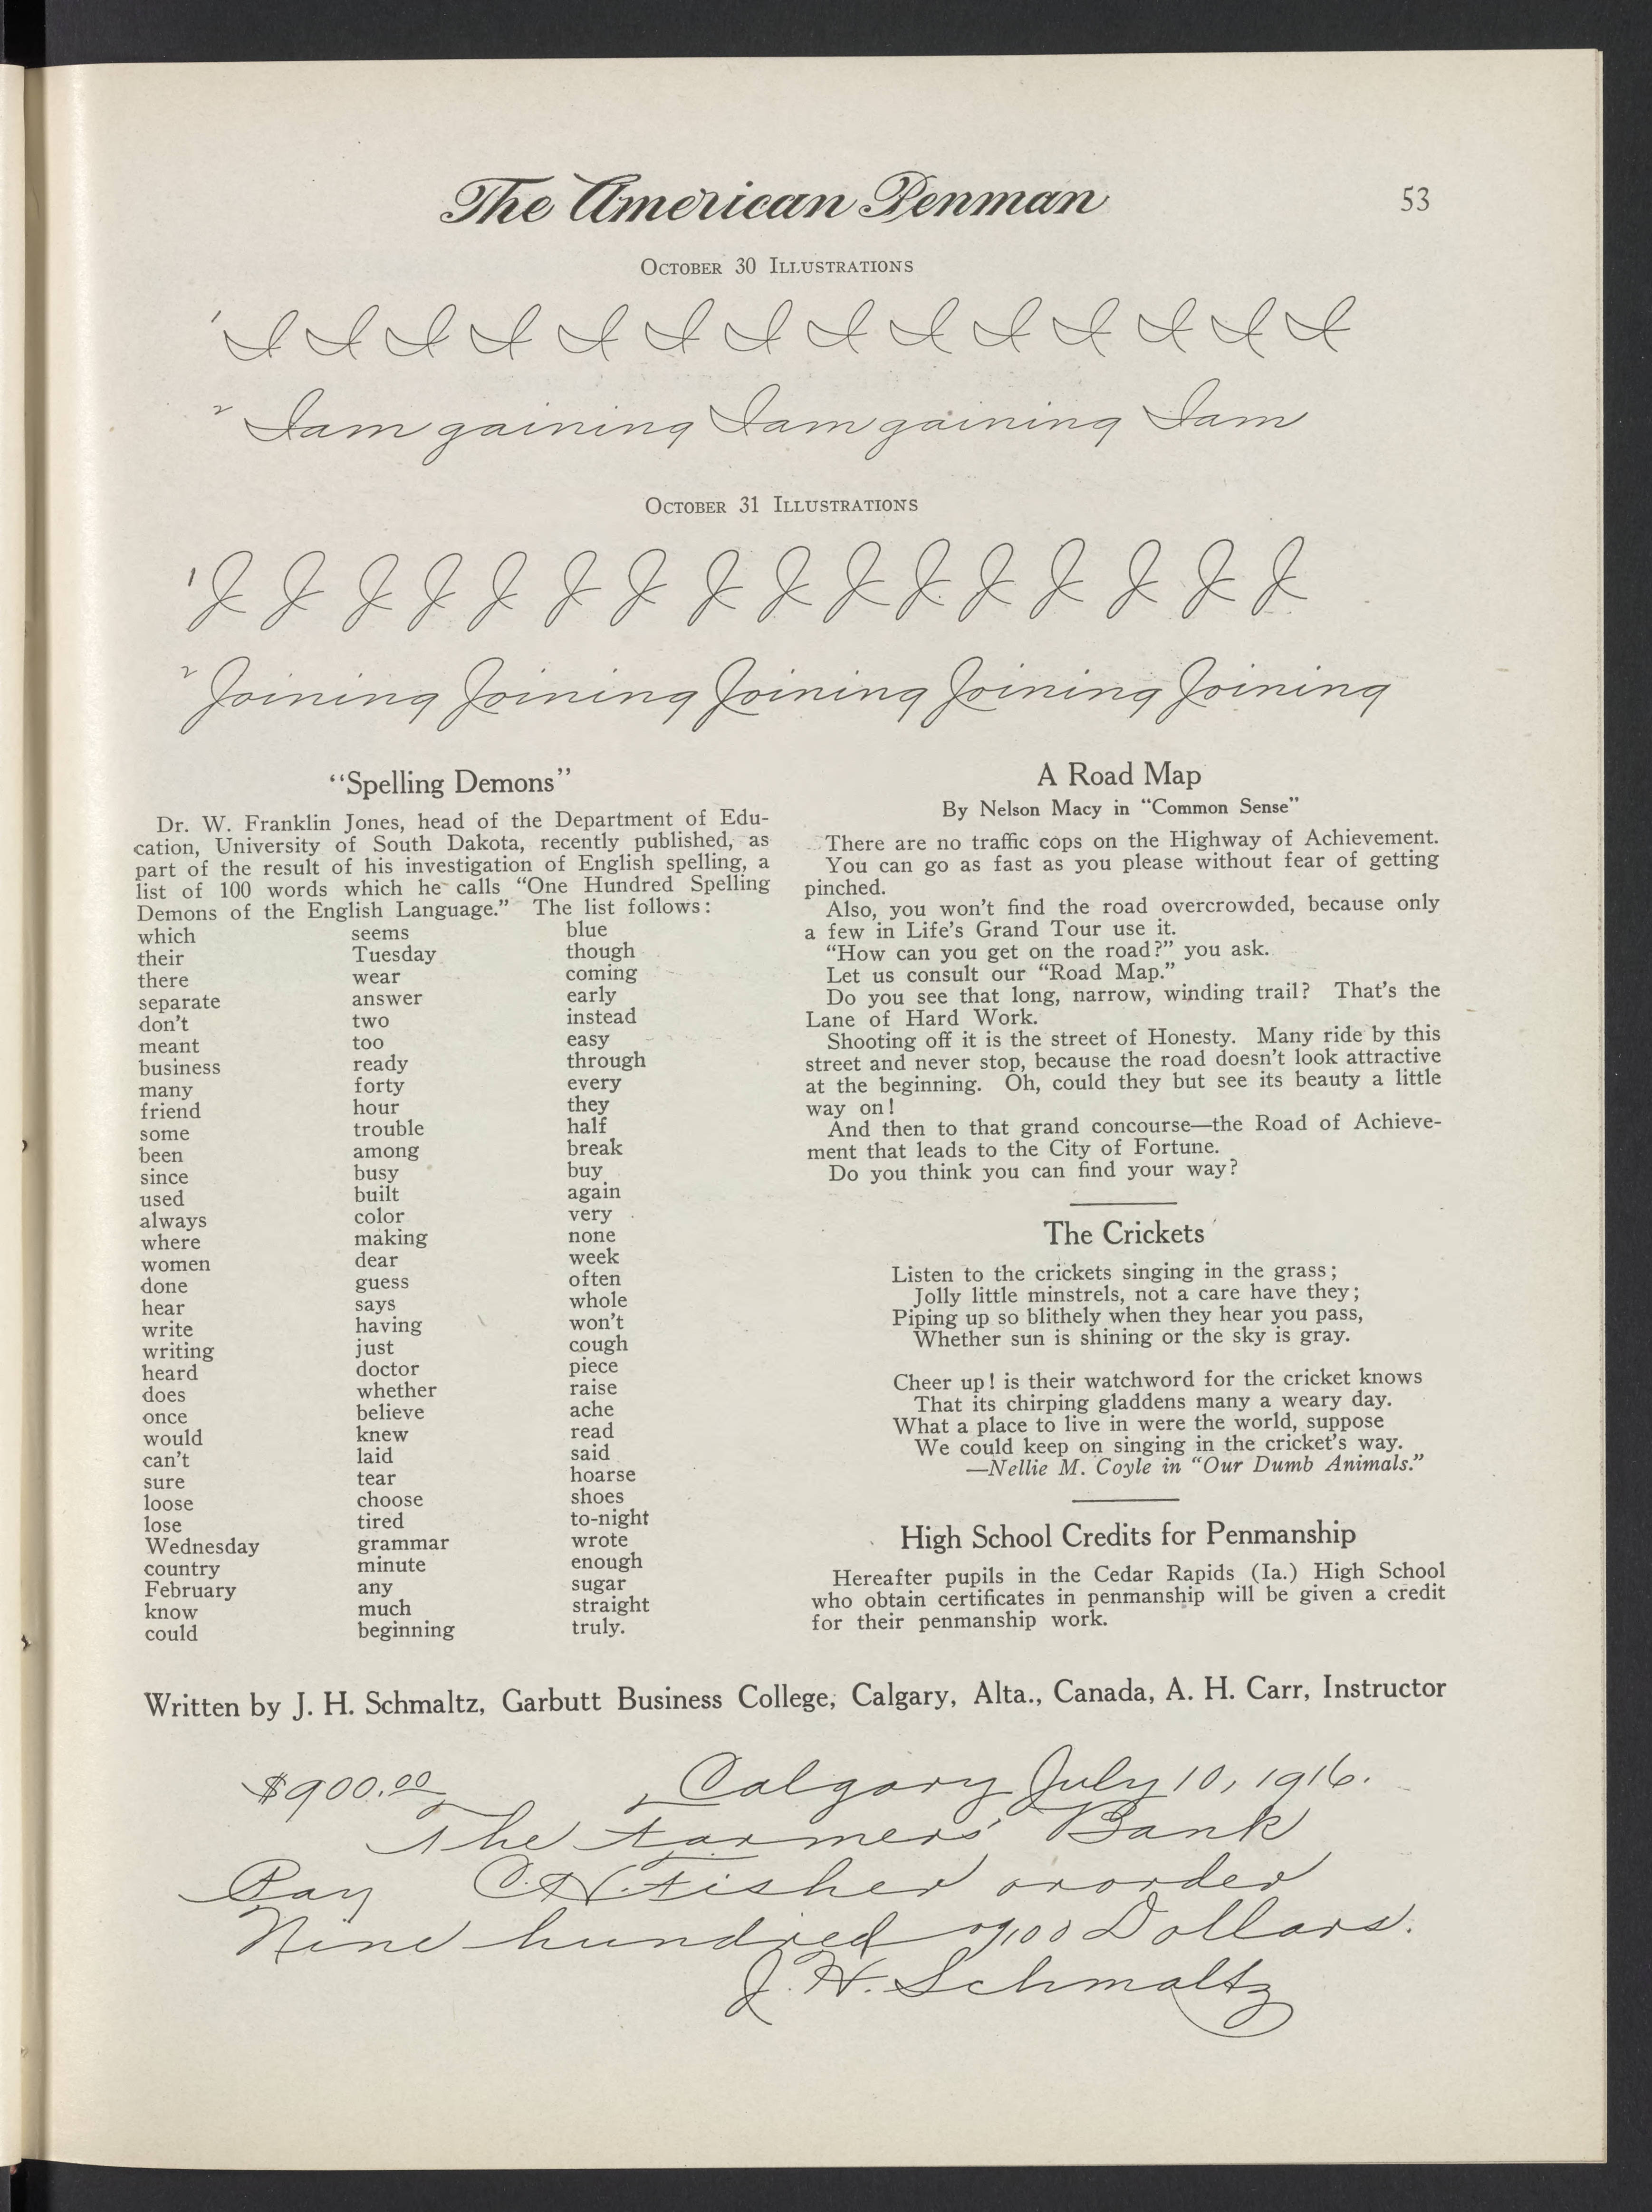 The American Penman
53
October 30 Illustrations
1 I I I I I I I I I I I I I I
2 I am gaining I am gaining I am
October 31 Illustrations
1 J J J J J J J J J J J J J J J J
2 Joining Joining Joining Joining Joining
“Spelling Demons”
Dr. W. Franklin Jones, head of the Department of Edu-
cation, University of South Dakota, recently published, as
part of the result of his investigation of English spelling, a
list of 100 words which he calls “One Hundred Spelling
Demons of the English Language.” The list follows:
which
their
there
separate
don't
meant
business
many
friend
some
been
since
used
always
where
women
done
hear
write
writing
heard
does
once
would
can't
sure
loose
lose
Wednesday
country
February
know
could
seems
Tuesday
wear
answer
two
too
ready
forty
hour
trouble
among
busy
built
color
making
dear
guess
says
having
just
doctor
whether
believe
knew
laid
tear
choose
tired
grammar
minute
any
much
beginning
blue
though
coming
early
instead
easy
through
every
they
half
break
buy
again
very
none
week
often
whole
won't
cough
piece
raise
ache
read
said
hoarse
shoes
to-night
wrote
enough
sugar
straight
truly.
A Road Map
By Nelson Macy in “Common Sense”
There are no traffic cops on the Highway of Achievement.
You can go as fast as you please without fear of getting
pinched.
Also, you won't find the road overcrowded, because only
a few in Life's Grand Tour use it.
“How can you get on the road?” you ask.
Let us consult our “Road Map.”
Do you see that long, narrow, winding trail? That's the
Lane of Hard Work.
Shooting off it is the street of Honesty. Many ride by this
street and never stop, because the road doesn't look attractive
at the beginning. Oh, could they but see its beauty a little
way on!
And then to that grand concourse—the Road of Achieve-
ment that leads to the City of Fortune.
Do you think you can find your way?
The Crickets
Listen to the crickets singing in the grass;
Jolly little minstrels, not a care have they;
Piping up so blithely when they hear you pass,
Whether sun is shining or the sky is gray.
Cheer up! is their watchword for the cricket knows
That its chirping gladdens many a weary day.
What a place to live in were the world, suppose
We could keep on singing in the cricket's way.
—Nellie M. Coyle in “Our Dumb Animals.”
High School Credits for Penmanship
Hereafter pupils in the Cedar Rapids (Ia.) High School
who obtain certificates in penmanship will be given a credit
for their penmanship work.
Written by J. H. Schmaltz, Garbutt Business College, Calgary, Alta., Canada, A. H. Carr, Instructor
$900.00 Calgary July 10, 1916.
The Farmers' Bank
Pay C. H. Fisher or order
Nine hundred 00/100 Dollars.
J. H. Schmaltz